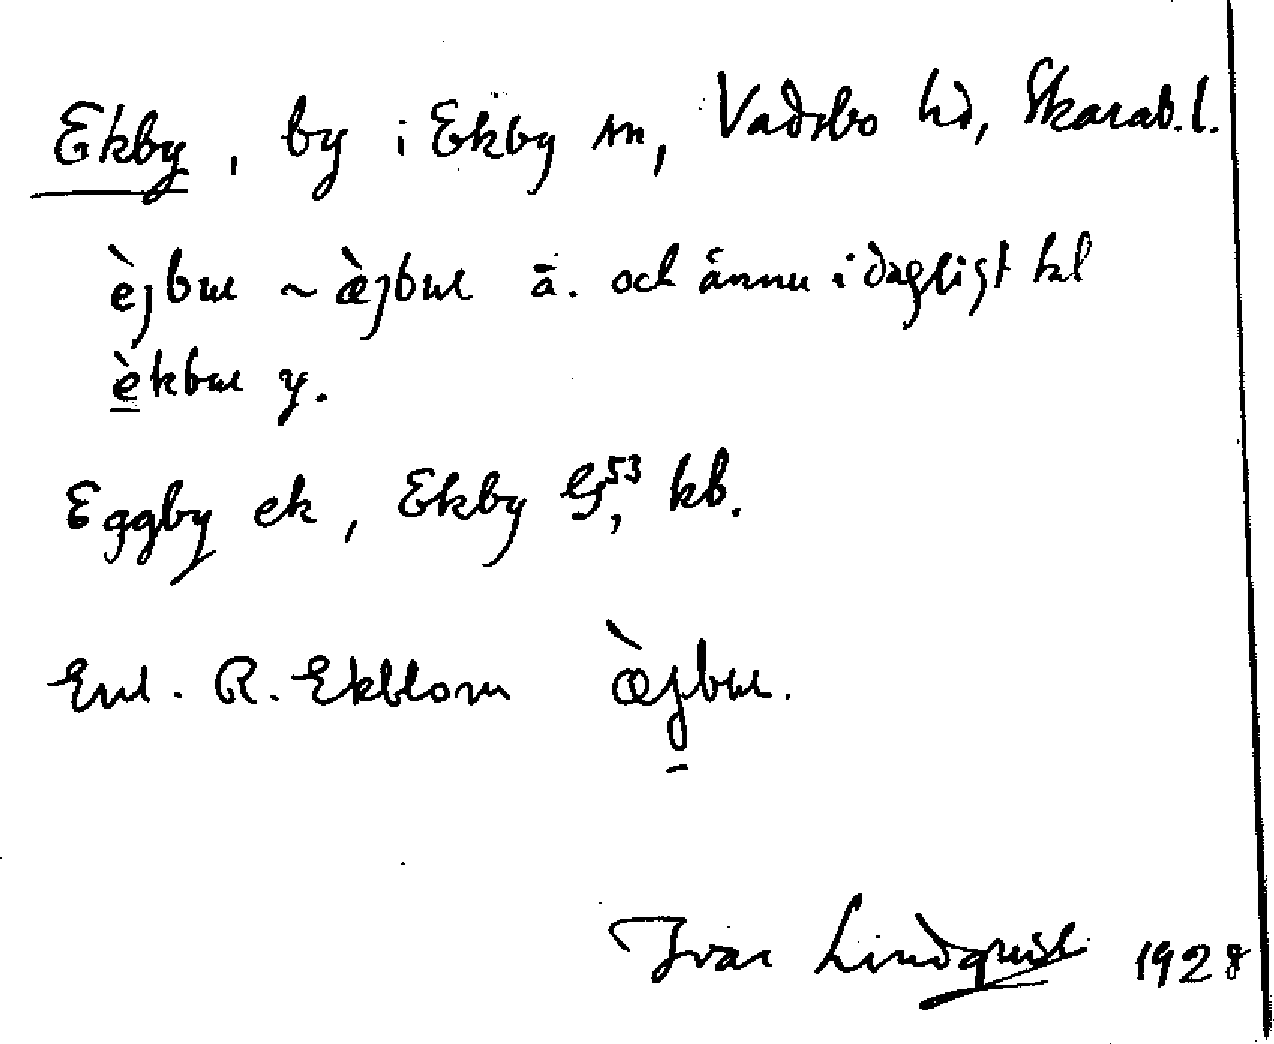 Ekby, by i Ekby sn, Vadsbo hd, Skarab. l.
èjbɯ ~ æ̀jbɯ ä. och ännu i dagligt tal
èkbɯ y.
Eggby ek, Ekby G⁵³, kb.
Enl. R. Ekblom æ̀jbɯ.
Ivar Lindquist 1928